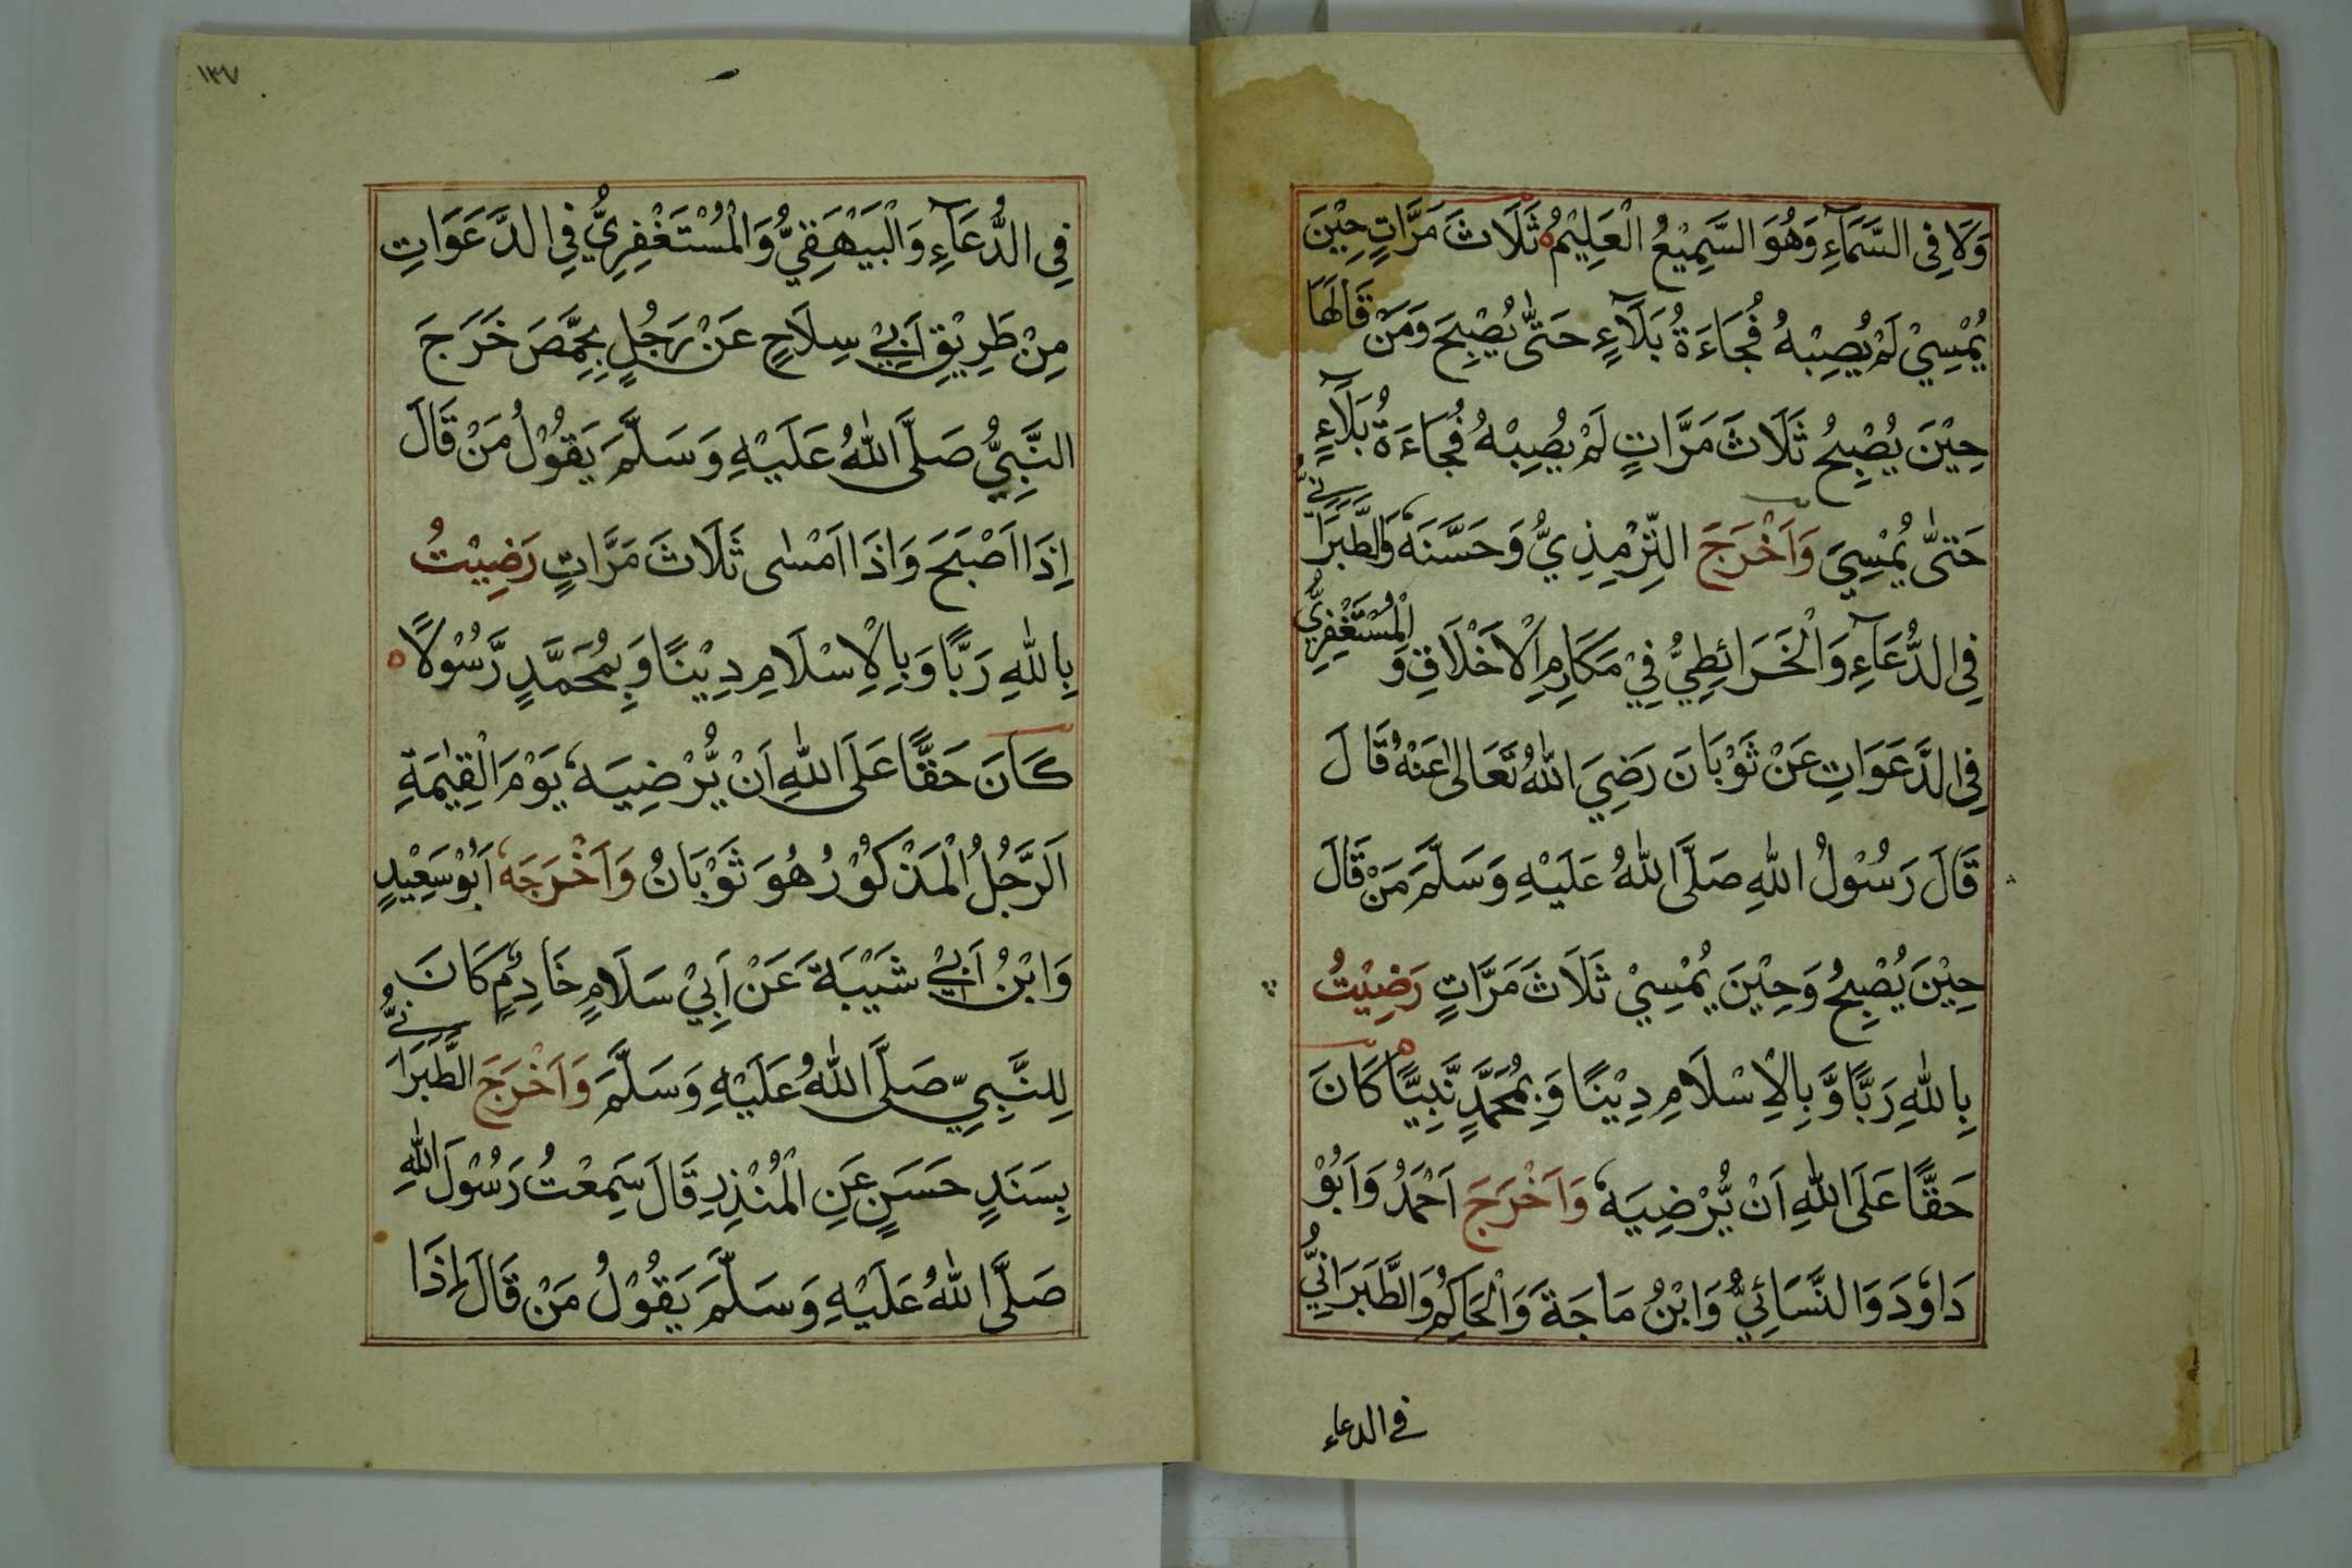 وَلَا فِى السَّمَآءِ وَهُوَ السَّمِيْعُ الْعَلِيْمُ ثَلَاثَ مَرَّاتٍ حِيْنَ
يُمْسِيْ لَمْ يُصِبْهُ فُجَاءَةُ بَلَآءٍ حَتّٰى يُصْبِحَ وَمَنْ قَالَهَا
حِيْنَ يُصْبِحُ ثَلَاثَ مَرَّاتٍ لَمْ يُصِبْهُ فُجَاءَةُ بَلَآءٍ
حَتّٰى يُمْسِيَ وَاَخْرَجَ التِّرْمِذِيُّ وَحَسَّنَهٗ وَالطَّبَرَانِيُّ
فِى الدُّعَآءِ وَالْخَرَائِطِيُّ فِيْ مَكَارِمِ الْاَخْلَاقِ وَ الْمُسْتَغْفِرِيُّ
فِى الدَّعَوَاتِ عَنْ ثَوْبَانَ رَضِيَ اللّٰهُ تَعَالٰى عَنْهُ قَالَ
قَالَ رَسُوْلُ اللّٰهِ صَلَّى اللّٰهُ عَلَيْهِ وَسَلَّمَ مَنْ قَالَ
حِيْنَ يُصْبِحُ وَحِيْنَ يُمْسِيْ ثَلَاثَ مَرَّاتٍ رَضِيْتُ
بِاللّٰهِ رَبًّا وَّ بِالْاِسْلَامِ دِيْنًا وَ بِمُحَمَّدٍ نَّبِيًّا كَانَ
حَقًّا عَلَى اللّٰهِ اَنْ يُّرْضِيَهٗ وَاَخْرَجَ اَحْمَدُ وَاَبُوْ
دَاوٗدَ وَالنَّسَائِيُّ وَابْنُ مَاجَةَ وَالْحَاكِمُ وَالطَّبَرَانِيُّ
في الدعاء
١٣٧
فِى الدُّعَآءِ وَالْبَيْهَقِيُّ وَالْمُسْتَغْفِرِيُّ فِى الدَّعَوَاتِ
مِنْ طَرِيْقِ اَبِيْ سِلَاحٍ عَنْ رَجُلٍ بِحِمَّصَ خَرَجَ
النَّبِيُّ صَلَّى اللّٰهُ عَلَيْهِ وَسَلَّمَ يَقُوْلُ مَنْ قَالَ
اِذَا اَصْبَحَ وَاِذَا اَمْسٰى ثَلَاثَ مَرَّاتٍ رَضِيْتُ
بِاللّٰهِ رَبًّا وَبِالْاِسْلَامِ دِيْنًا وَبِمُحَمَّدٍ رَّسُوْلًا
كَانَ حَقًّا عَلَى اللّٰهِ اَنْ يُّرْضِيَهٗ يَوْمَ الْقِيٰمَةِ
اَلرَّجُلُ الْمَذْكُوْرُ هُوَ ثَوْبَانُ وَاَخْرَجَهٗ اَبُوْ سَعِيْدٍ
وَابْنُ اَبِيْ شَيْبَةَ عَنْ اَبِيْ سَلَامٍ خَادِمٍ كَانَ
لِلنَّبِيِّ صَلَّى اللّٰهُ عَلَيْهِ وَسَلَّمَ وَاَخْرَجَ الطَّبَرَانِيُّ
بِسَنَدٍ حَسَنٍ عَنِ الْمُنْذِرِ قَالَ سَمِعْتُ رَسُوْلَ اللّٰهِ
صَلَّى اللّٰهُ عَلَيْهِ وَسَلَّمَ يَقُوْلُ مَنْ قَالَ اِذَا